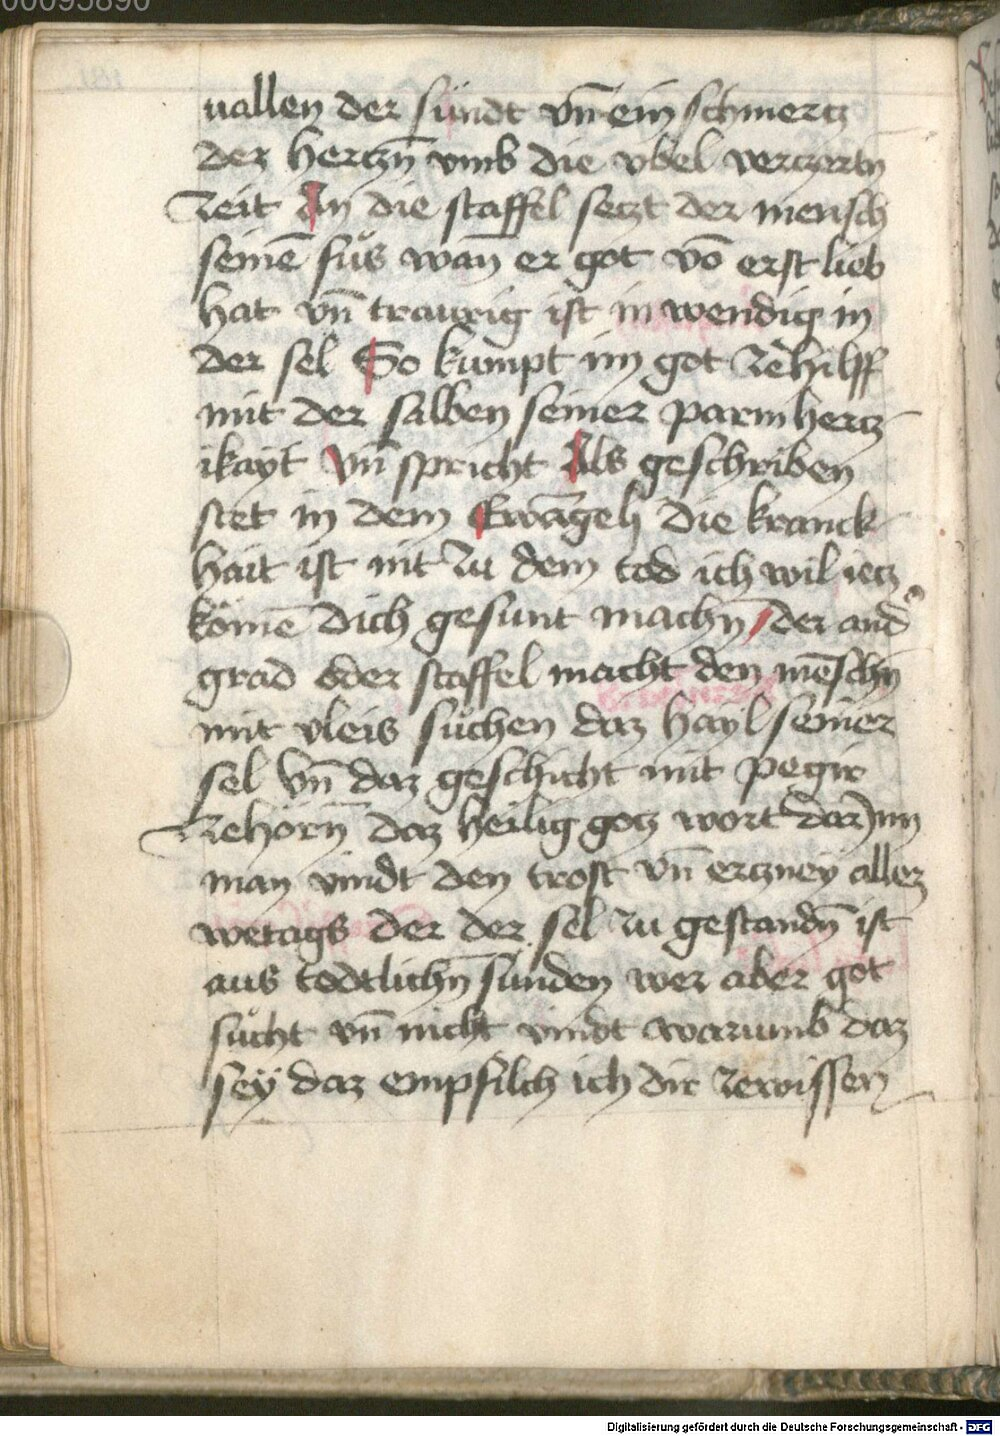 00095890
uallen der sündt vn̄ ein schmertz
dez hertzn̄ vmb die vbel verczertn
zeit An die staffel seczt der mensch
seinē fůs wan̄ er got vō erst lieb
hat vn̄ traurig ist in wendig in
der sel So kumpt im got zehilff
mit der salben seiner parmhercz
ikayt Vn̄ spricht Als geschriben
stet in dem Ewāgely die kranck
hait ist nit zu dem tod ich wil iecz
kömē dich gesunt machn̄ / der and
grad oder staffel macht den mēschn
mit vleis sůchen daz hayl seiner
sel vn̄ daz geschicht mit pegir
zehörn̄ daz heilig gocz wort dar Inn
man vindt den trost vn̄ erczney allez
wetags der der sel zu gestandn̄ ist
aus todtlichn̄ sünden wer aber got
sůcht vn̄ nicht vindt warumb daz
sey daz empfilch ich dir zewissen
Digitalisierung gefördert durch die Deutsche Forschungsgemeinschaft - DFG